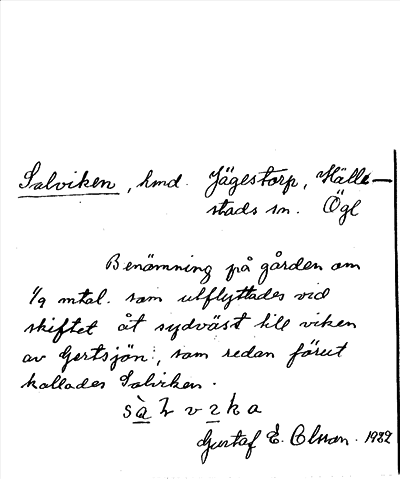 Salviken, hmd. Jägestorp, Hälle-
stads sn. Ögl
Benämning på gården om
1/9 mtal. som utflyttades vid
skiftet åt sydväst till viken
av Gertsjön, som redan förut
kallades Salviken.
Gustaf E. Olsson. 1932